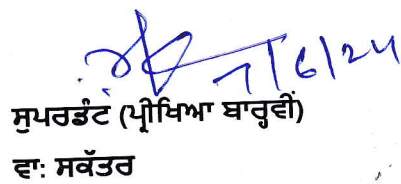 7/6/24
ਸੁਪਰਡੰਟ (ਪ੍ਰੀਖਿਆ ਬਾਰ੍ਹਵੀਂ)
ਵਾ: ਸਕੱਤਰ